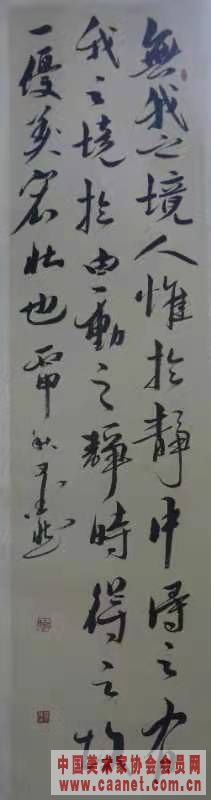 無我之境人惟於靜中得之有
我之境於由動之靜時得之故
一優美宏壯也丙申秋
中国美术家协会会员网
www.caanet.com.cn